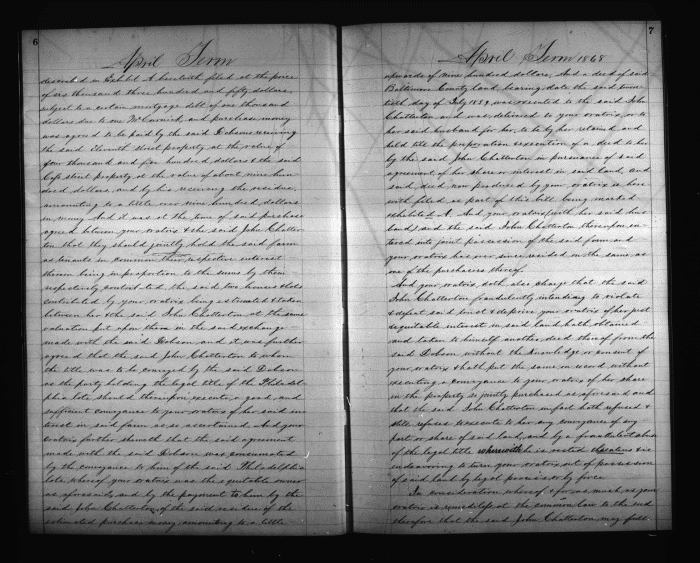 6
April Term
described in Exhibit A herewith filed at the price
of six thousand three hundred and fifty dollars,
subject to a certain mortgage debt of one thousand
dollars due to one McCormick, and purchase money
was agreed to be paid by the said Dobson receiving
the said Eleventh street property at the value of
four thousand and five hundred dollars & the said
street property at the value of about nine hun-
dred dollars, and by his receiving the residue,
amounting to a little over nine hundred dollars
in money. And it was at the time of said purchase
agreed between your oratrix & the said John Chatter-
ton that they should jointly hold the said farm
as tenants in common their respective interest
therein being in proportion to the sums by them
respectively contributed the said two houses & lots
contributed by your oratrix being estimated & taken
between her & the said John Chatterton at the same
valuation put upon them in the said exchange
made with the said Dobson and it was further
agreed that the said John Chatterton to whom
the title was to be conveyed by the said Dobson
as the party holding the legal title of the Philadel-
phia lots should thereupon execute a good, and
sufficient conveyance to your oratrix of her said in-
terest in said farm so as ascertained. And your
oratrix further sheweth that the said agreement
made with the said Dobson was consummated
by the conveyance to him of the said Philadelphia
lots, whereof your oratrix was the equitable owner
as aforesaid, and by the payment to him by the
said John Chatterton of the said residue of the
estimated purchase money, amounting to a little
7
April Term 1868
upwards of nine hundred dollars, And a deed of said
Baltimore County land, bearing date the said twen-
tieth day of July 1859, was executed to the said John
Chatterton and was delivered to your oratrix, or to
her said husband for her, to be by her retained and
held till the preparation & execution of a deed to her
by the said John Chatterton in pursuance of said
agreement of her share or interest in said land, and
said deed now produced by your oratrix is here-
with filed as part of this bill being marked
exhibit A. And your oratrix with her said hus-
band, and the said John Chatterton thereupon en-
tered into joint possession of the said farm and
your oratrix has ever since resided on the same as
one of the purchasers thereof.
And your oratrix doth also charge that the said
John Chatterton fraudulently intending to violate
& defeat said trust & deprive your oratrix of her just
& equitable interest in said land hath obtained
and taken to himself another deed thereof from the
said Dobson without the knowledge or consent of
your oratrix & hath put the same on record without
executing a conveyance to your oratrix of her share
in the property so jointly purchased as aforesaid and
that the said John Chatterton in fact hath refused &
still refuses to execute to her any conveyance of any
part or share of said land, and by a fraudulent abuse
of the legal title wherewith he is vested threatens & is
endeavoring to turn your oratrix out of possession
of said land by legal process or by force.
In consideration whereof & for as much as your
oratrix is remediless at the common law to the end
therefore that the said John Chatterton may full